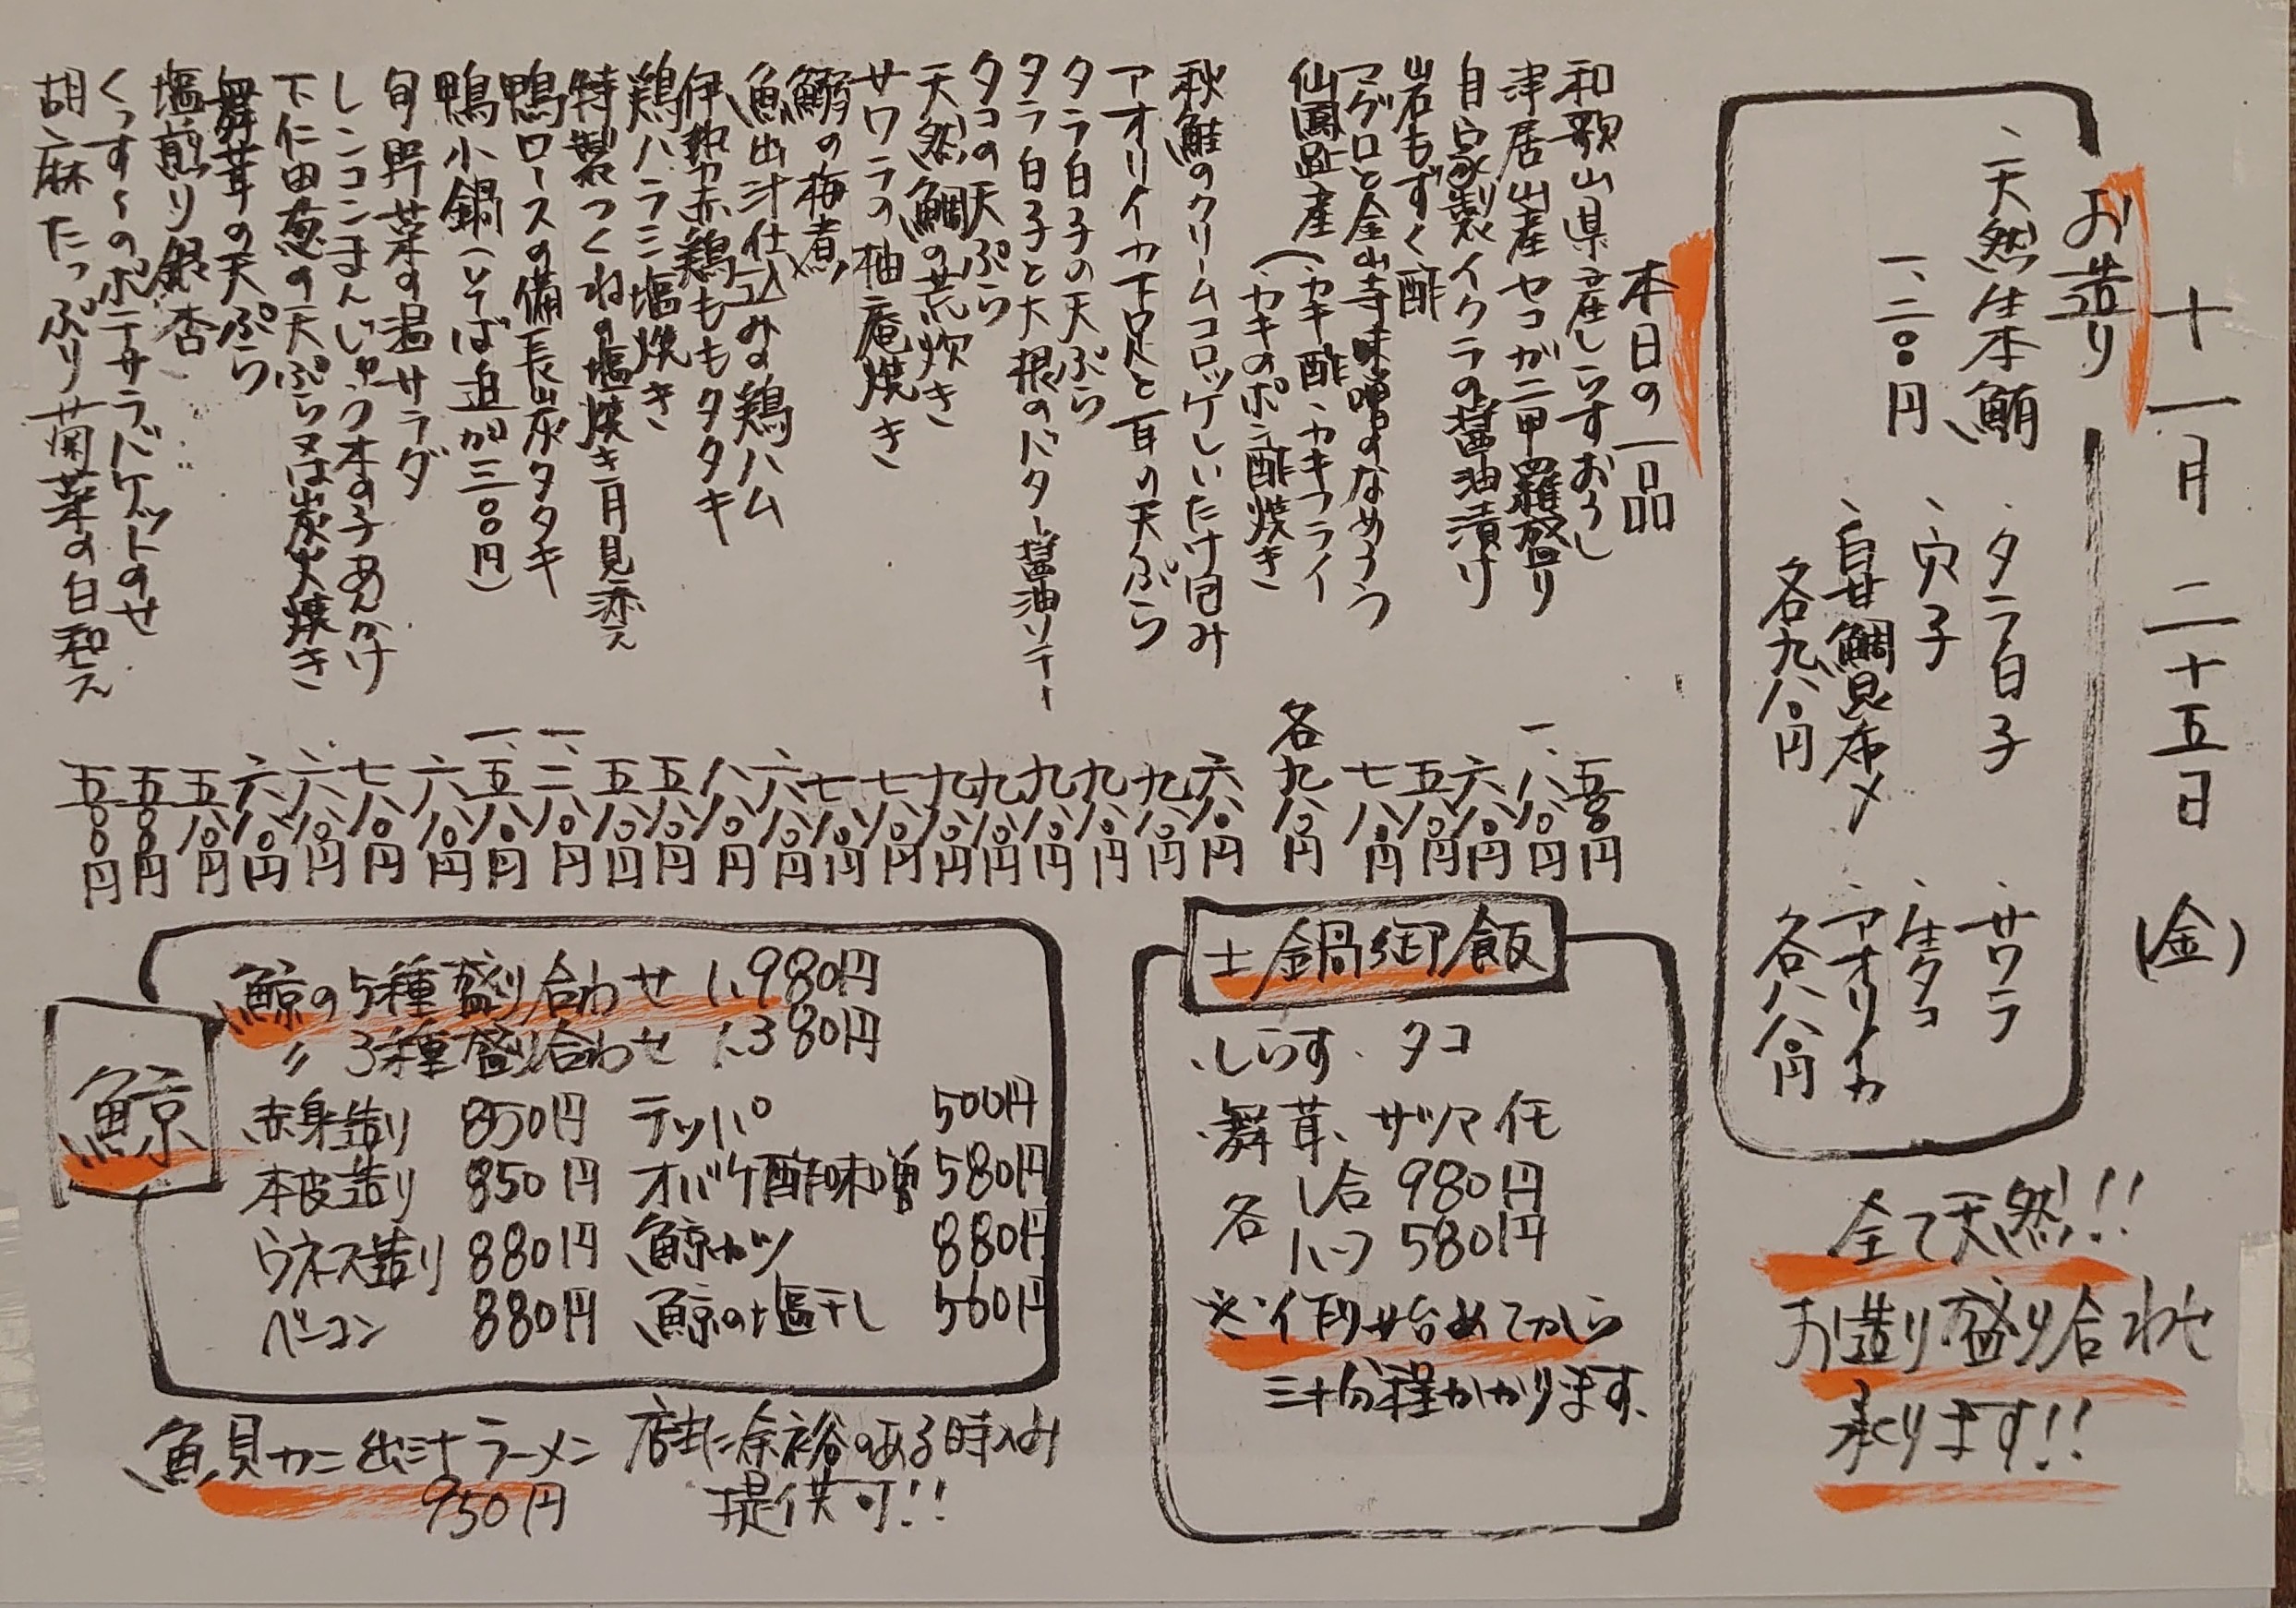 十一月二十五日(金)
お造り
、天然生本鮪
一、二〇〇円
、タラ白子
、穴子
、甘鯛昆布〆
各九八〇円
、サワラ
、生タコ
、アオリイカ
各八八〇円
全て天然!!
お造り盛り合わせ
承ります!!
本日の一品
和歌山県産しらすおろし 五〇〇円
津居山産セコガニ甲羅盛り 一、八八〇円
自家製イクラの醤油漬け 六八〇円
岩もずく酢 五八〇円
マグロと金山寺味噌のなめろう 七八〇円
仙鳳趾産(、カキ酢、カキフライ
、カキのポン酢焼き 各九八〇円
秋鮭のクリームコロッケしいたけ包み 六八〇円
アオリイカ下足と耳の天ぷら 九八〇円
タラ白子の天ぷら 九八〇円
タラ白子と大根のバター醤油ソテー 九八〇円
タコの天ぷら 九八〇円
天然鯛の荒炊き 九八〇円
サワラの柚庵焼き 七八〇円
鰯の梅煮 七八〇円
魚出汁仕込みの鶏ハム 六八〇円
伊勢赤鶏ももタタキ 八八〇円
鶏ハラミ塩焼き 五八〇円
特製つくねの塩焼き月見添え 五八〇円
鴨ロースの備長炭タタキ 一、二八〇円
鴨小鍋(そば追加三〇〇円) 一、五八〇円
旬野菜の温サラダ 六八〇円
レンコンまんじゅう木の子あんかけ 七八〇円
下仁田葱の天ぷら又は炭火焼き 六八〇円
舞茸の天ぷら 六八〇円
塩煎り銀杏 五八〇円
くっすーのポテサラバケットのせ 五〇〇円
胡麻たっぷり菊菜の白和え 五〇〇円
土鍋御飯
、しらす、タコ
、舞茸、サツマ芋
各 1合 980円
ハーフ 580円
※作り始めてから
三十分程かかります、
鯨
鯨の5種盛り合わせ 1,980円
〃 3種盛り合わせ 1,380円
赤身造り 850円 テッパ 500円
本皮造り 850円 オバケ酢味噌 580円
ウネス造り 880円 鯨カツ 880円
ベーコン 880円 鯨の塩干し 560円
魚貝カニ出汁ラーメン 店に余裕のある時のみ
950円 提供可!!